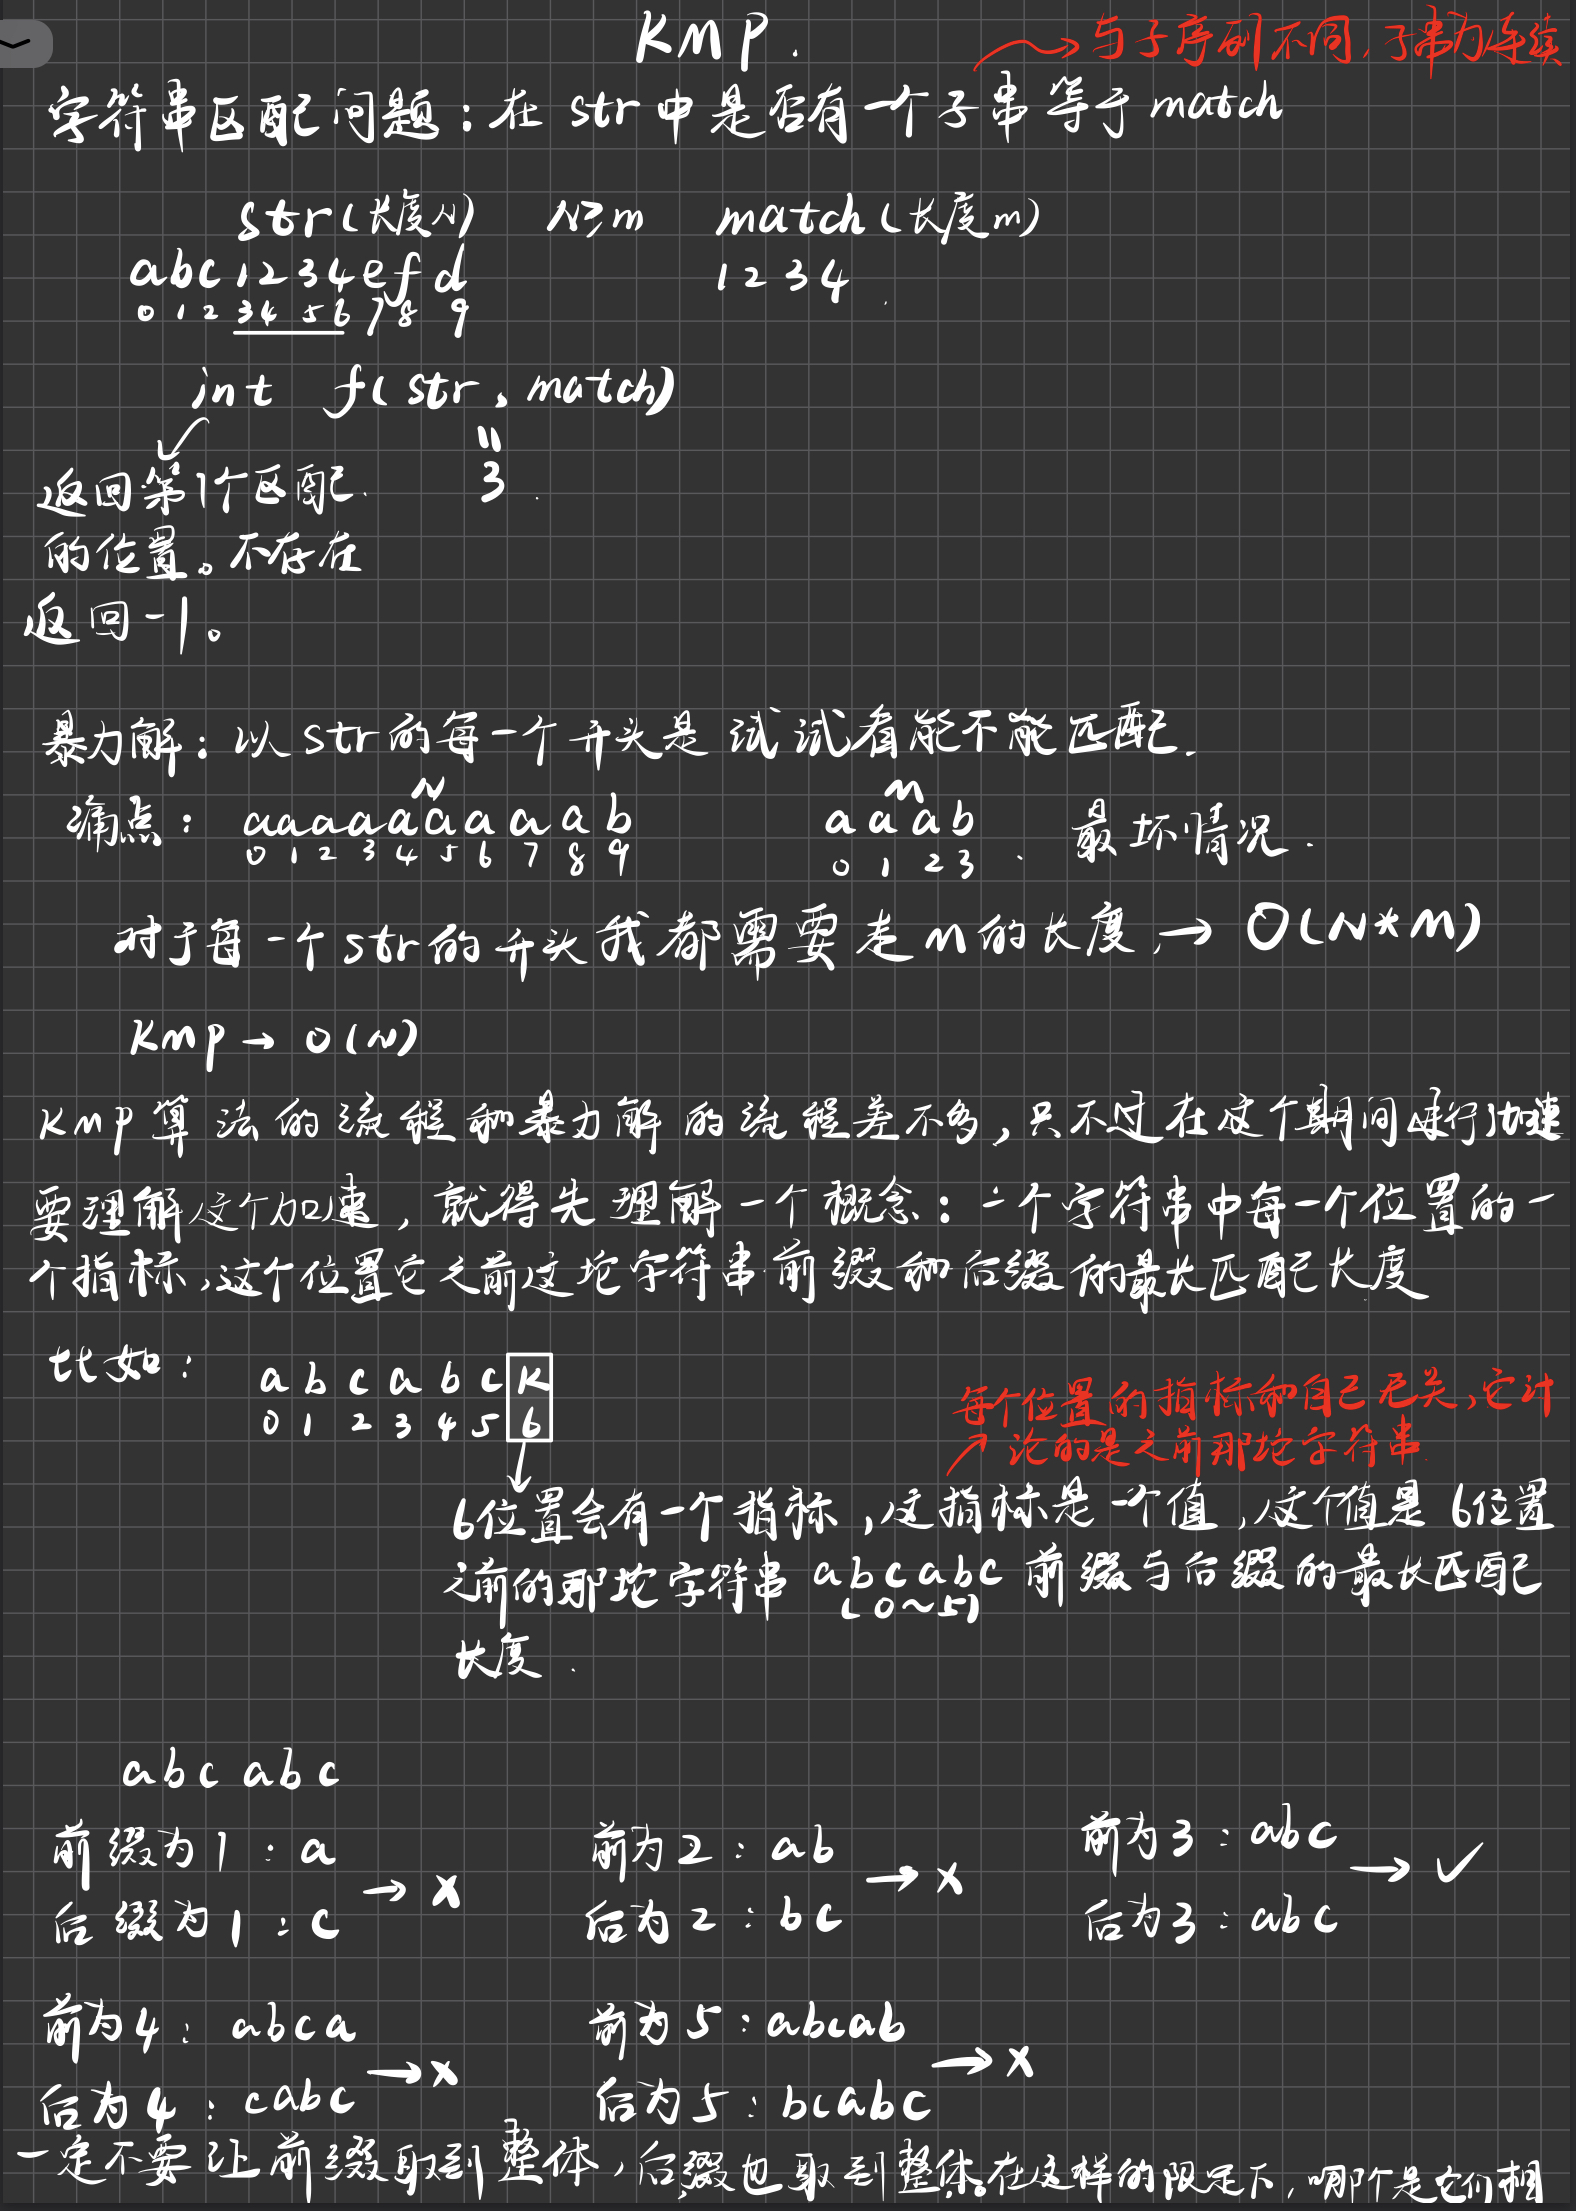 KMP.
→与子序列不同,子串为连续
字符串匹配问题:在 str 中是否有一个子串等于 match
str(长度N) N≥m match(长度m)
abc1234efd 1234
0 1 2 3 4 5 6 7 8 9
int f(str, match)
返回第1个匹配. 3
的位置。不存在
返回-1。
暴力解:以str的每一个开头是试试看能不能匹配.
N M
痛点: aaaaaaaaab aaab 最坏情况.
0 1 2 3 4 5 6 7 8 9 0 1 2 3
对于每一个str的开头我都需要走m的长度,→ O(N*M)
Kmp→ O(N)
KMP算法的流程和暴力解的流程差不多,只不过在这个期间进行加速
要理解这个加速,就得先理解一个概念:一个字符串中每一个位置的一
个指标,这个位置它之前这坨字符串前缀和后缀的最长匹配长度
比如: a b c a b c K
0 1 2 3 4 5 6
每个位置的指标和自己无关,它讨
论的是之前那坨字符串
6位置会有一个指标,这指标是一个值,这个值是6位置
之前的那坨字符串 abcabc 前缀与后缀的最长匹配
(0~5)
长度.
abcabc
前缀为1:a 前为2:ab 前为3:abc
→ x → x → ✓
后缀为1:c 后为2:bc 后为3:abc
前为4:abca 前为5:abcab
→x →x
后为4:cabc 后为5:bcabc
一定不要让前缀取到整体,后缀也取到整体。在这样的限定下,哪个是它们相